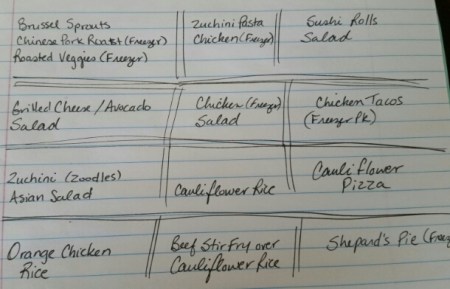 Brussel Sprouts
Chinese Pork Roast (Freezer)
Roasted Veggies (Freezer)
Zuchini Pasta
Chicken (Freezer)
Sushi Rolls
Salad
Grilled Cheese / Avocado
Salad
Chicken (Freezer)
Salad
Chicken Tacos
(Freezer Pk)
Zuchini (Zoodles)
Asian Salad
Cauliflower Rice
Cauliflower
Pizza
Orange Chicken
Rice
Beef Stir Fry over
Cauliflower Rice
Shepard's Pie (Freez